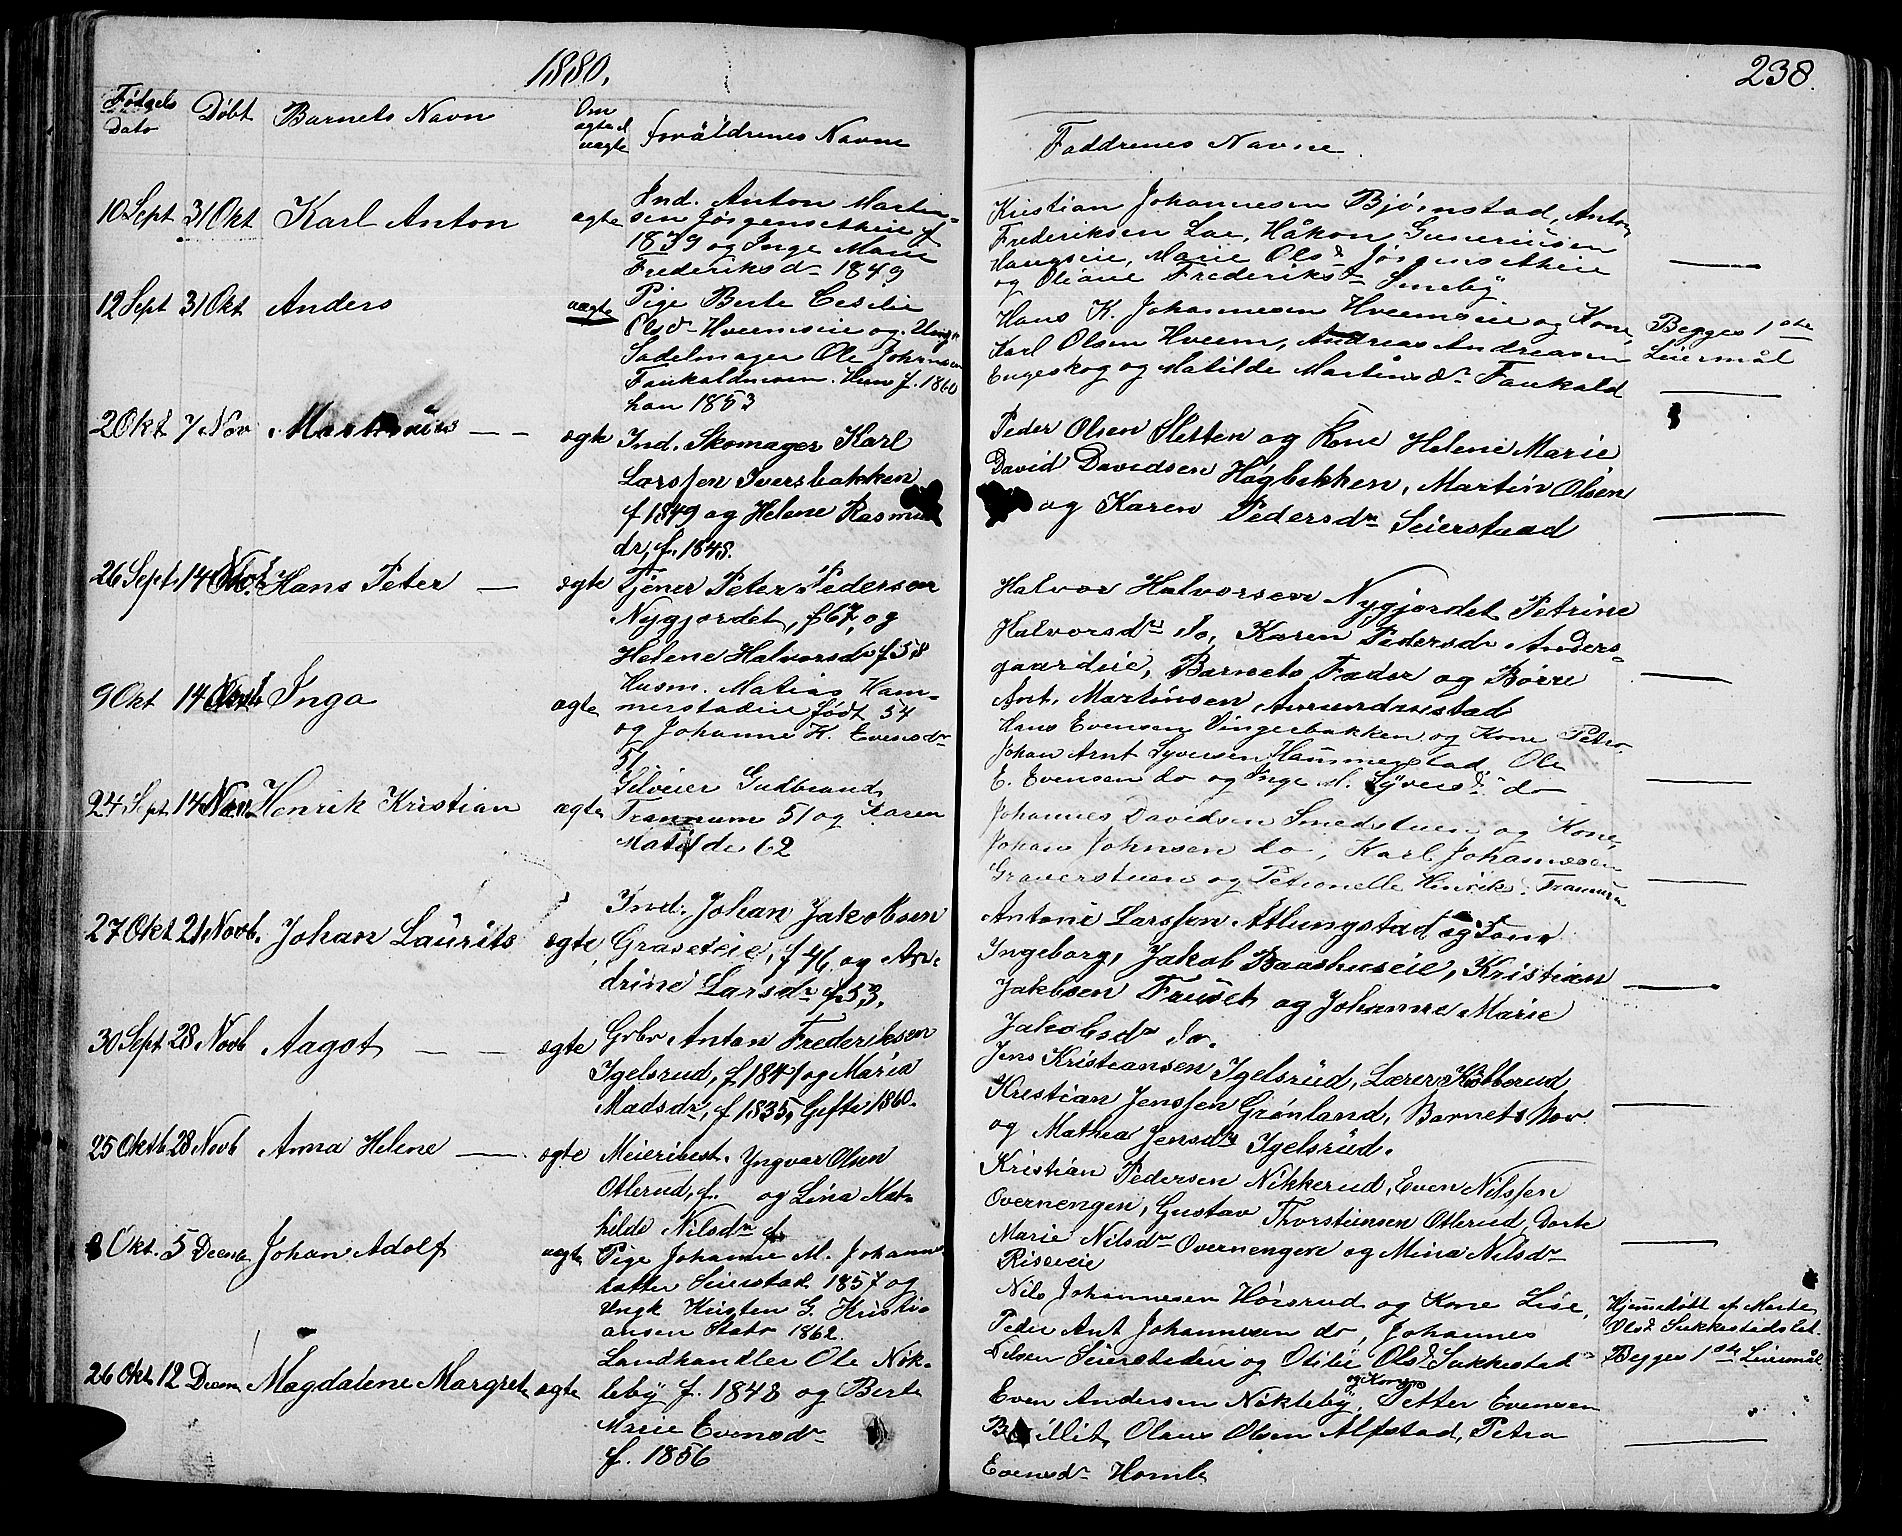 1880.
238.
Fødsels Dato
Døbt
Barnets Navn
Om ægte el uægte
forældrenes Navne
Faddrenes Navne
10 Sept 31 Okt Karl Anton ægte
Ind. Anton Martin-
sen Jørgensetheie f
1839 og Inge Marie
Frederiksdr 1849
Kristian Johannesen Bjørnstad, Anton
Frederiksen Lae, Håkon Gunneriusen
Haugseie, Marie Olsd Jørgensetheie
og Oliane Frederiksd Smeby.
12 Sept 31 Okt Anders uægte
Pige Berte Cesilie
Olsdr Hveemseie og Ungk
Sadelmager Ole Johansen
Faukaldneien. Hun f. 1860
han 1853
Hans K. Johannesen Hveemseie og Kone,
Karl Olsen Hveem, Andreas Andreasen
Engeskog og Matilde Martinsdr Faukald
Begges 1ste
Leiermål
2 Okt 7 Nov Martinius ægte
Ind. Skomager Karl
Larssen Iversbakken
f 1849 og Helene Rasmus
dr, f. 1848.
Peder Olsen Sletten og Kone Helene Marie
David Davidsen Høgbakken, Martin Olsen
og Karen Pedersdr Seierstuad
26 Sept. 14 Nov. Hans Peter ægte
Tjener Peter Pedersen
Nygjordet, f 67, og
Helene Halvorsdr f 58
Halvor Halvorsen Nygjordet Petrine
Halvorsdr do, Karen Pedersdr Anders-
gaardeie, Barnets Fader og Børre
Ant. Martinsen Amundrustad
9 Okt 14 Novb Inga ægte
Husm. Matias Ham-
merstadeie født 54
og Johanne K. Evensdr
51
Hans Evensen Vingerbakken og Kone Petra
Johan Arnt Syversen Hammerstad, Ole
E. Evensen do og Inge M. Syversd do
24 Sept 14 Nov. Henrik Kristian ægte
Selveier Gudbrand
Trannum 51 og Karen
Matilde 62
Johannes Davidsen Smedstuen og Kone,
Johan Johnsen do, Karl Johannesen
Graverstuen og Petronelle Henriks. Trannum
27 Okt 21 Novb. Johan Laurits ægte
Ind. Johan Jakobsen
Graveseie, f 46, og An-
drine Larsdr f 53.
Antone Larssen Atlungstad og Kone
Ingeborg, Jakob Baashuseie, Kristian
Jakobsen Fruset og Johanne Marie
Jakobsdr do.
30 Sept 28 Novb Aagot ægte
Grbr Anton Frederiksen
Igelsrud, f 1841 og Maria
Madsdr, f 1835, Gifte 1860.
Jens Kristiansen Igelsrud, Lærer Kobberud
Kristian Jenssen Grønland, Barnets Mor
og Mathea Jensdr Igelsrud.
25 Oktb 28 Novb Anna Helene ægte
Meieribest. Yngvar Olsen
Otlerud, f. og Lina Mat-
hilde Nilsdr f.
Kristian Pedersen Nikkerud, Even Nilssen
Overnengen, Gustav Thorstensen Otlerud, Dorte
Marie Nilsdr Overnengen og Mina Nilsdr
Riseveie
8 Okt. 5 Decmb Johan Adolf uægte
Pige Johanne M. Johannes
datter Seierstad 1857 og
Ungk Kristen G. Kristi-
ansen Stabo 1862.
Nils Johannesen Hørsrud og Kone Lise,
Peder Ant Johannesen do, Johannes
Nilsen Seierstaden og Otilie Olsd Sukkestad
Hjemdøbt af Marte
Olsd Sukkestadslet.
Begges 1ste Leiermål
26 Okt 12 Decem Magdalene Margrete ægte
Landhandler Ole Nøk-
leby f. 1848 og Berte
Marie Evensdr
f. 1856
Even Andersen Nøkleby og Kone, Petter Evensen
Olaus Olsen Alfstad, Petra
Evensdr Homle